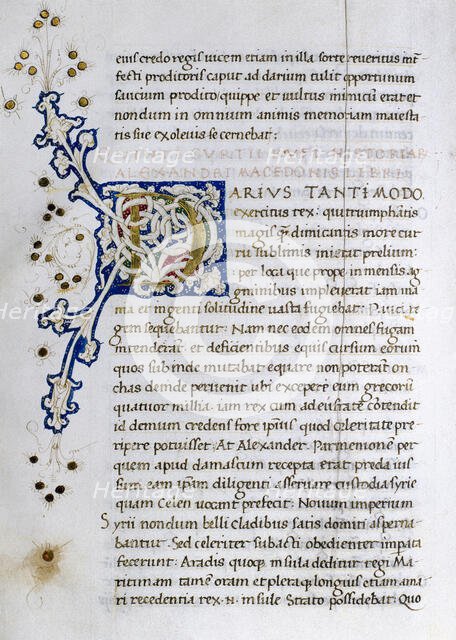 eius credo regis vicem etiam in illa sorte reveritus int
festi proditoris caput ad darium tulit opportunum
saucium prodito; quippe et vultus inimicū erat et
nondum in omnium animis memoriam maiesta
tis sue exolevisse cernebat:
Q CURTII HISTORIAE
ALEXANDRI MACEDONIS LIBER
DARIUS TANTI MODO
exercitus rex: qui triumphātis
magis q̄ dimicantis more cur
ru sublimis inierat prelium:
per loca que prope inmensis ag
minibus impleverat iam ina
nia et ingenti solitudine vasta fugiebat: Pauci re
gem sequebantur: Nam nec eodem omnes fugam
intenderāt et deficientibus equis cursum eorum
quos subinde mutabat equare non poterant: On
chas deinde pervenit ubi exceperē eum grecorū
quatuor millia. iam rex cum ad eufratē contendit
id demum credens fore ipsius quod celeritate pre
ripere potuisset: At Alexander Parmenionē per
quem apud damascum recepta erat preda ius
sum eam ipsāq; diligenti asservare custodia syrie
quam Celen vocant prefecit: Novum imperium
Syrii nondum belli cladibus satis domiti asperna
bantur. Sed celeriter subacti obedienter impata
fecerunt: Aradis quoq; insula deditur regi Ma
ritimam tamē oram et pleraq; longius etiam a ma
ri recedentia rex .N. insule Strato possidebat: Quo
Heritage
Images